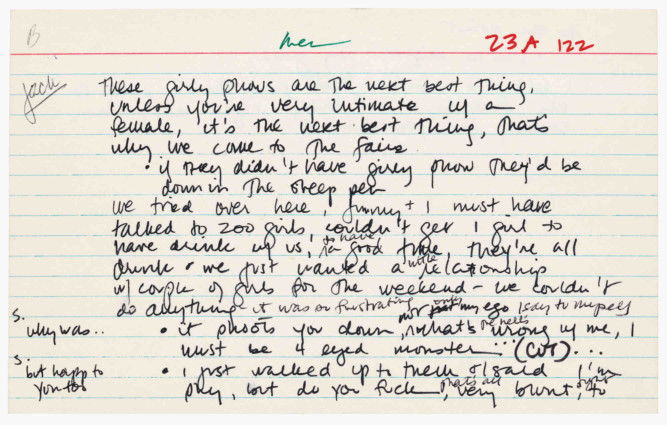 B
men
23A 122
Jack
These girly shows are the next best thing,
unless you're very intimate w/ a
female, it's the next best thing, that's
why we come to the fairs.
• if they didn't have girly show they'd be
down in the sheep pen
we tried over here, Jimmy + I must have
talked to 200 girls, couldn't get 1 girl to
have drink w/ us, to have a good time they're all
drunk • we just wanted a little relationship
w/ couple of girls for the weekend - we couldn't
do anything it was so frustrating not only my ego I say to myself
S.
why was..
• it shoots you down, what's the hell's wrong w/ me, I
must be 4 eyed monster... (CUT)...
S.
but happ to
you too
• I just walked up to them & said I'm
shy, but do you fuck, that's all very blunt, to